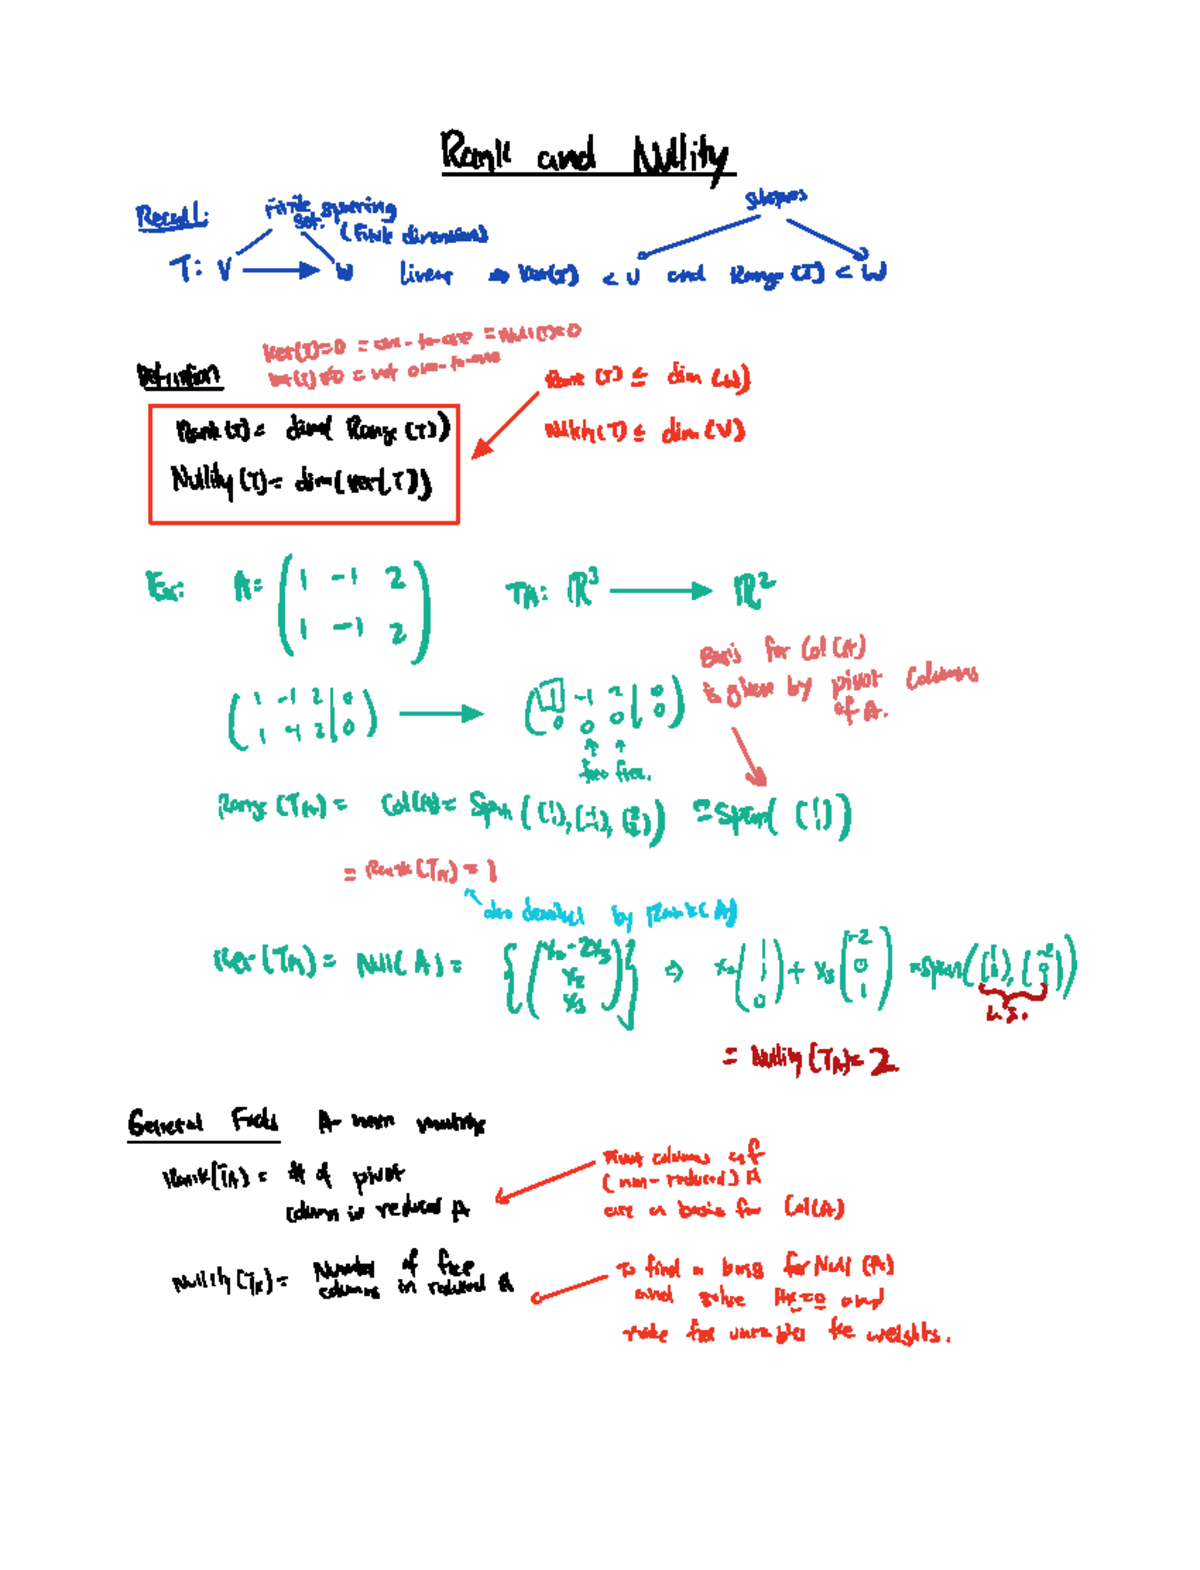 Rank and Nullity
Recall:
Finite spanning
set.
(Finite dimension)
subspaces
T: V → W linear ⇒ Ker(T) < V and Range(T) < W
Ker(T)=0 = one-to-one = Null(T)=0
Ker(T)≠0 = not one-to-one
Definition
Rank(T) ≤ dim(W)
Rank(T) = dim(Range(T))
Nullity(T) ≤ dim(V)
Nullity(T) = dim(Ker(T))
Ex: A = ( 1 -1 2
1 -1 2 )
TA: ℝ³ → ℝ²
Basis for Col(A)
is given by pivot columns
of A.
( 1 -1 2 | 0
1 -1 2 | 0 ) → ( 1 -1 2 | 0
0 0 0 | 0 )
↑ ↑
free.
Range(TA) = Col(A) = Span( (1 1), (-1 -1), (2 2) ) = Span( (1 1) )
= Rank(TA) = 1
also denoted by Rank(A)
Ker(TA) = Null(A) = { ( x2 - 2x3
x2
x3 ) } ⇒ x2 ( 1 1 0 ) + x3 ( -2 0 1 ) = Span( (1 1 0), (-2 0 1) )
L.I.
= Nullity(TA) = 2
General Facts A - mxn matrix
Rank(TA) = # of pivot
column in reduced A
Pivot columns of
(non-reduced) A
are a basis for Col(A)
Nullity(TA) = Number of free
columns in reduced A
To find a basis for Null(A)
and solve Ax=0 and
make free variables the weights.